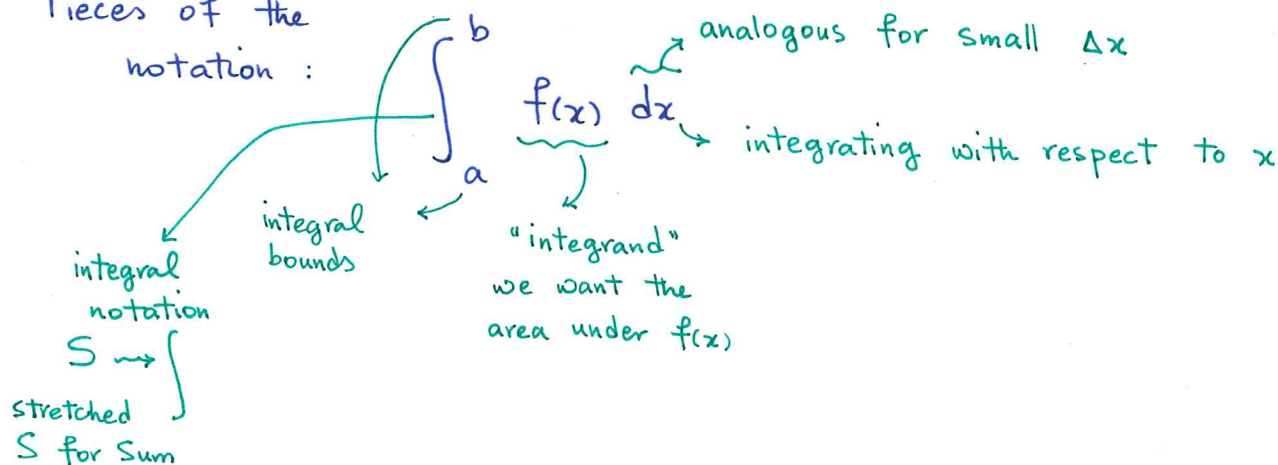 Pieces of the
notation :
∫ₐᵇ f(x) dx
analogous for small Δx
integrating with respect to x
integral
bounds
"integrand"
we want the
area under f(x)
integral
notation
S ⇝ ∫
stretched
S for Sum